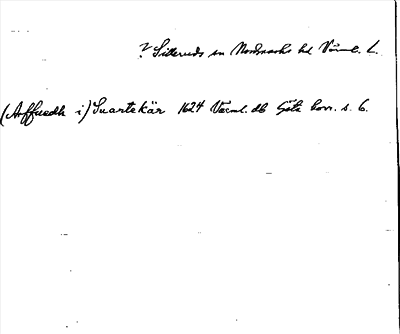 ? Silleruds sn Nordmarks hd Värml. L.
(Arffuedh i) Suartekär 1624 Värml. db Göta hovr. s. 6.